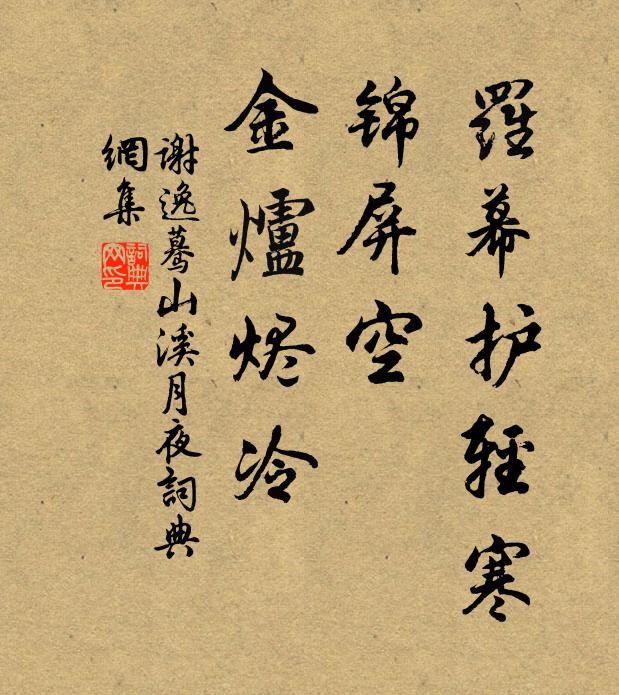 羅幕护輕寒
錦屏空
金爐烬冷
谢逸蓦山溪月夜詞典
網集
詞典网印